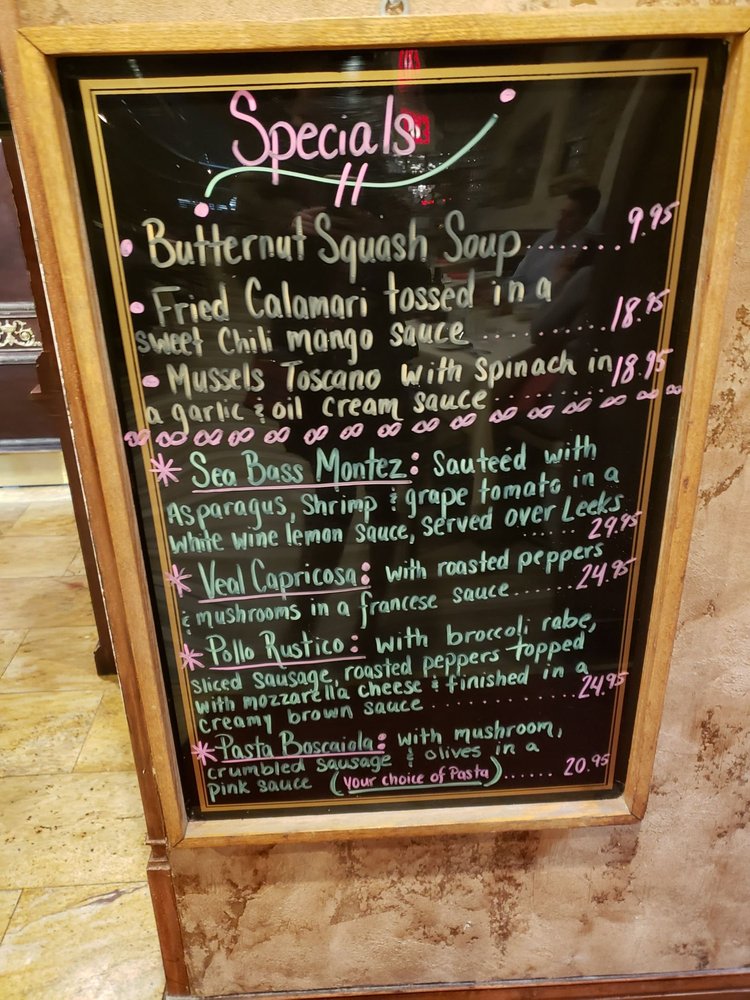 Specials
• Butternut Squash Soup....... 9.95
• Fried Calamari tossed in a
sweet Chili mango sauce .......... 18.95
• Mussels Toscano with Spinach in 18.95
a garlic & oil cream sauce..........
* Sea Bass Montez: Sauteéd with
Asparagus, Shrimp & grape tomato in a
white wine lemon sauce, served over Leeks
...... 29.95
* Veal Capricosa: with roasted peppers
& mushrooms in a francese sauce...... 24.95
* Pollo Rustico: with broccoli rabe,
sliced sausage, roasted peppers topped
with mozzarella cheese & finished in a
creamy brown sauce .............. 24.95
* Pasta Boscaiola: with mushroom,
crumbled sausage & olives in a
pink sauce (your choice of Pasta)...... 20.95